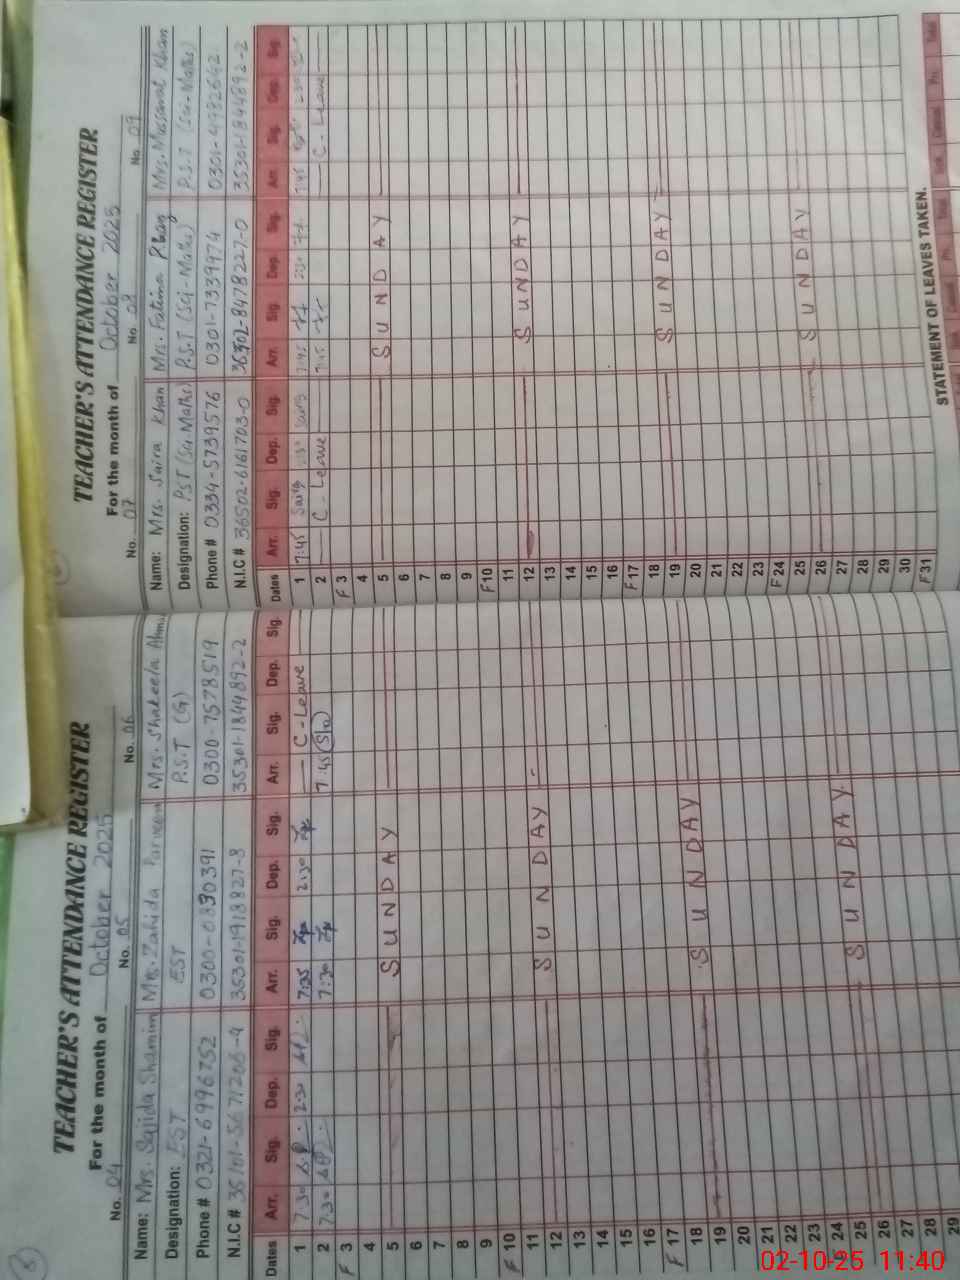 TEACHER'S ATTENDANCE REGISTER
For the month of October 2025
No. 04 No. 05 No. 06
Name: Mrs. Sajida Shamim Mrs. Zahida Parveen Mrs. Shakeela
Designation: EST EST P.S.T (G)
Phone # 0321-6996752 0300-0890391 0300-7578519
N.I.C # 35101-5671206-4 35301-1918827-8 35301-1844892-2
Dates Arr. Sig. Dep. Sig. Arr. Sig. Dep. Sig. Arr. Sig. Dep. Sig.
1 7:30 2:30 7:35 2:30 C-Leave
2 7:30 7:30 7:45
F 3
4
5 SUNDAY
6
7
8
9
F 10
11 SUNDAY
12
13
14
15
16
F 17
18 SUNDAY
19
20
21
22
23
F 24
25 SUNDAY
26
27
28
29
TEACHER'S ATTENDANCE REGISTER
For the month of October 2025
No. 07 No. 08 No. 09
Name: Mrs. Saira Khan Mrs. Fatima Mrs. Mussarat Khan
Designation: PST (Sci-Maths) P.S.T (Sci-Maths) P.S.T (Sci-Maths)
Phone # 0334-5739576 0301-7339974 0301-4982642
N.I.C # 36502-6161703-0 36302-8478227-0 35301-1844892-2
Dates Arr. Sig. Dep. Sig. Arr. Sig. Dep. Sig. Arr. Sig. Dep. Sig.
1 7:45 7:45 2:30 7:45 2:30
2 C-Leave 7:45 C-Leave
F 3
4
5 SUNDAY
6
7
8
9
F 10
11
12 SUNDAY
13
14
15
16
F 17
18 SUNDAY
19
20
21
22
23
F 24
25 SUNDAY
26
27
28
29
30
F 31
STATEMENT OF LEAVES TAKEN.
02-10-25 11:40